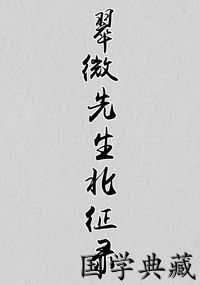 翠微先生北征录
国学典藏